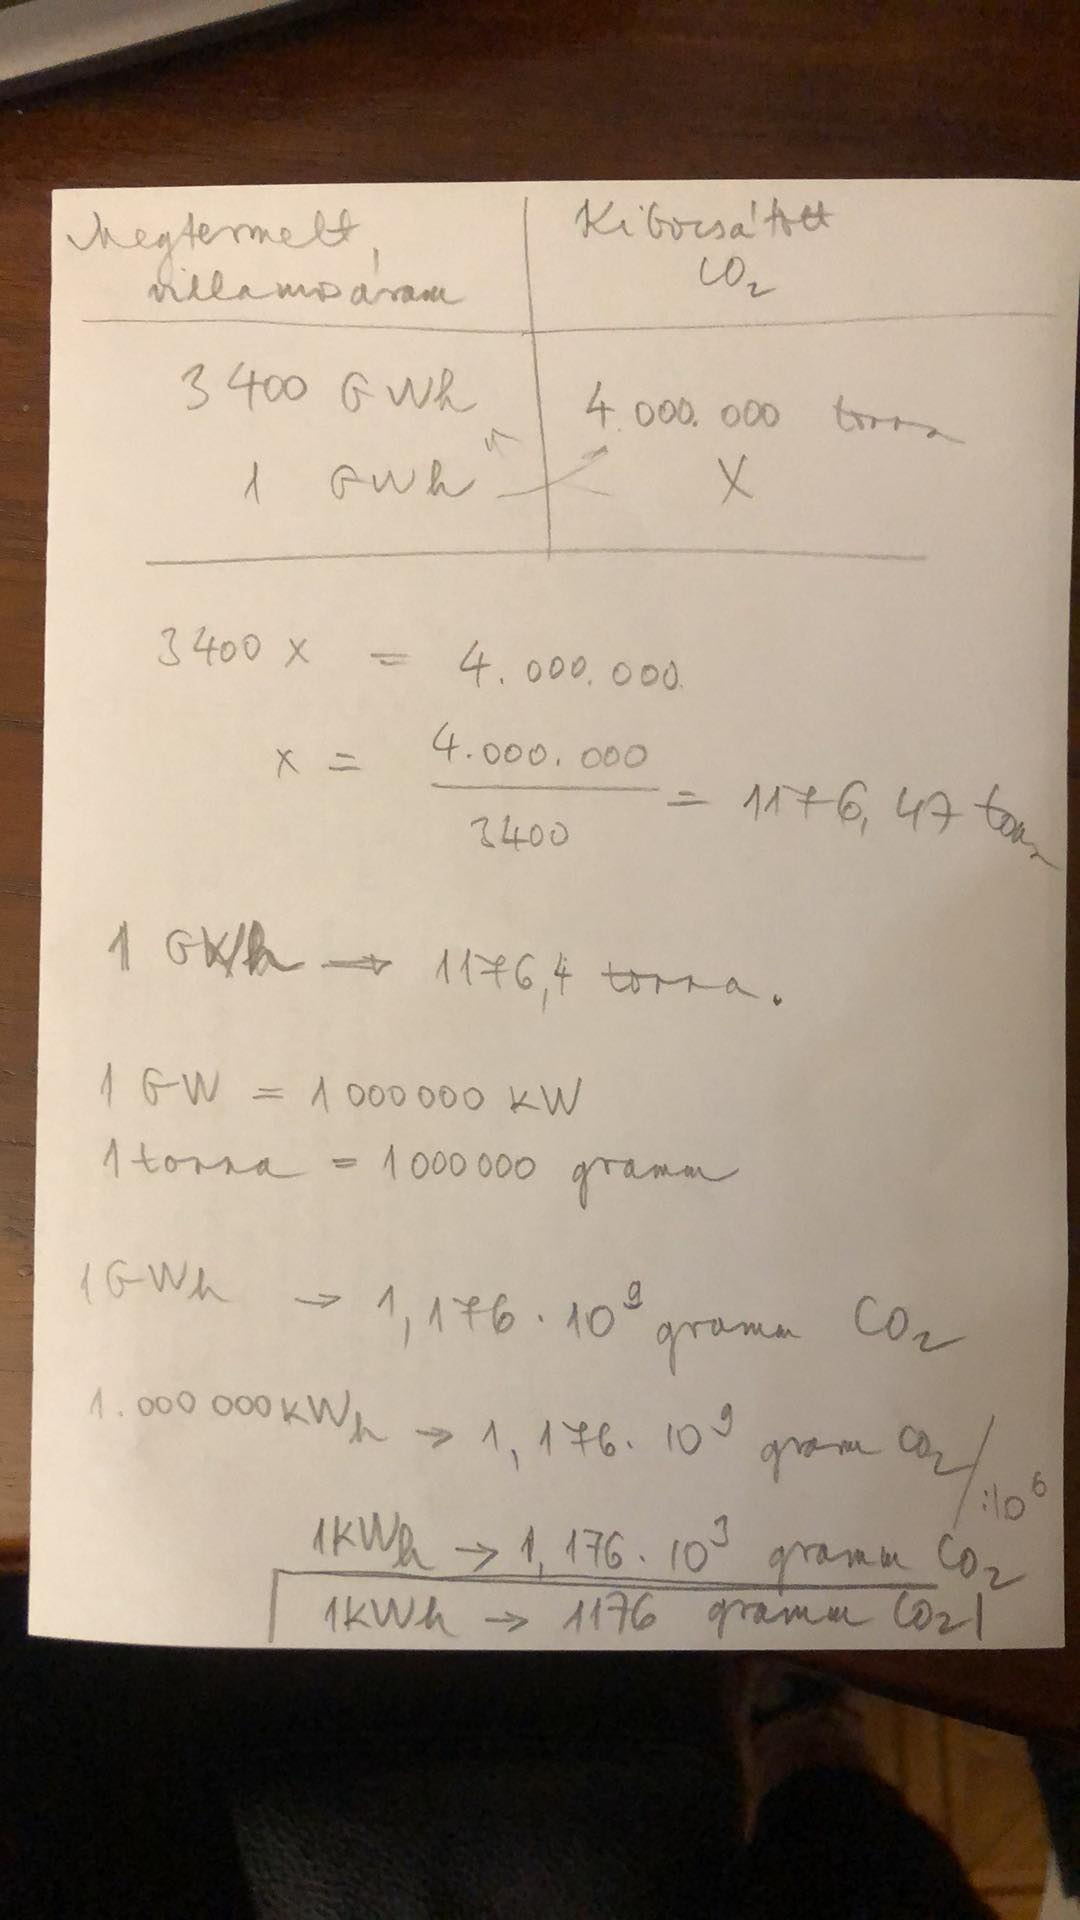 Megtermelt
villamosáram
Kibocsátott
CO₂
3400 GWh
4.000.000 tonna
1 GWh
X
3400 x = 4.000.000
x = 4.000.000 / 3400 = 1176,47 tonna
1 GWh → 1176,4 tonna.
1 GW = 1000000 KW
1 tonna = 1000000 gramm
1 GWh → 1,176 · 10⁹ gramm CO₂
1.000 000 KWh → 1,176 · 10⁹ gramm CO₂ / :10⁶
1KWh → 1,176 · 10³ gramm CO₂
1KWh → 1176 gramm CO₂